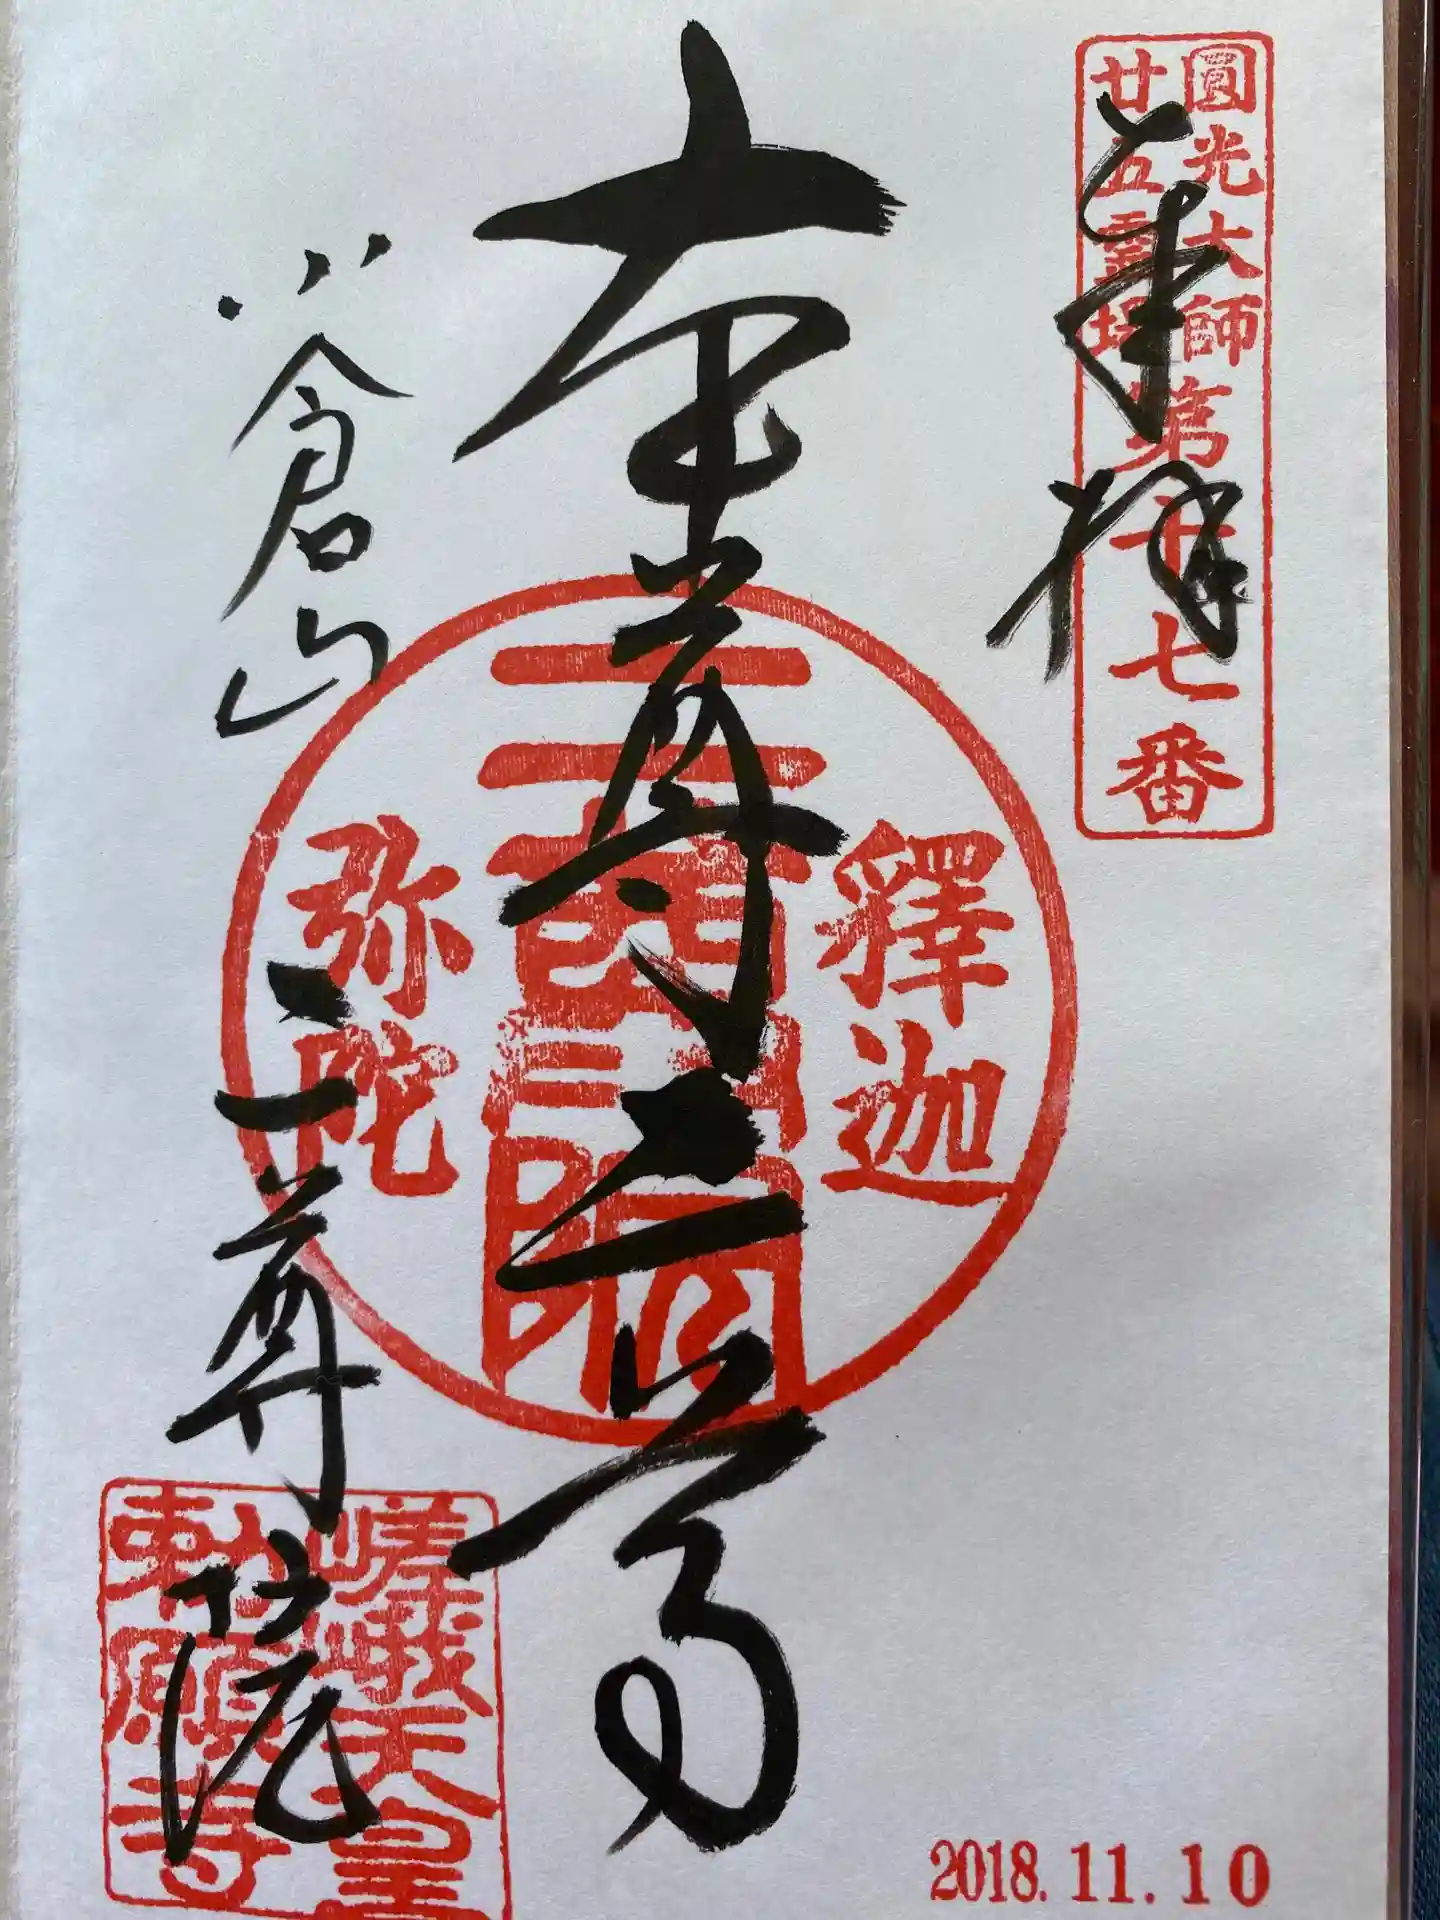 圓光大師
廿五霊場
第十七番
奉拝
本尊二尊
釋迦
二尊
弥陀
小倉山
二尊院
嵯峨天皇
勅願寺
2018.11.10